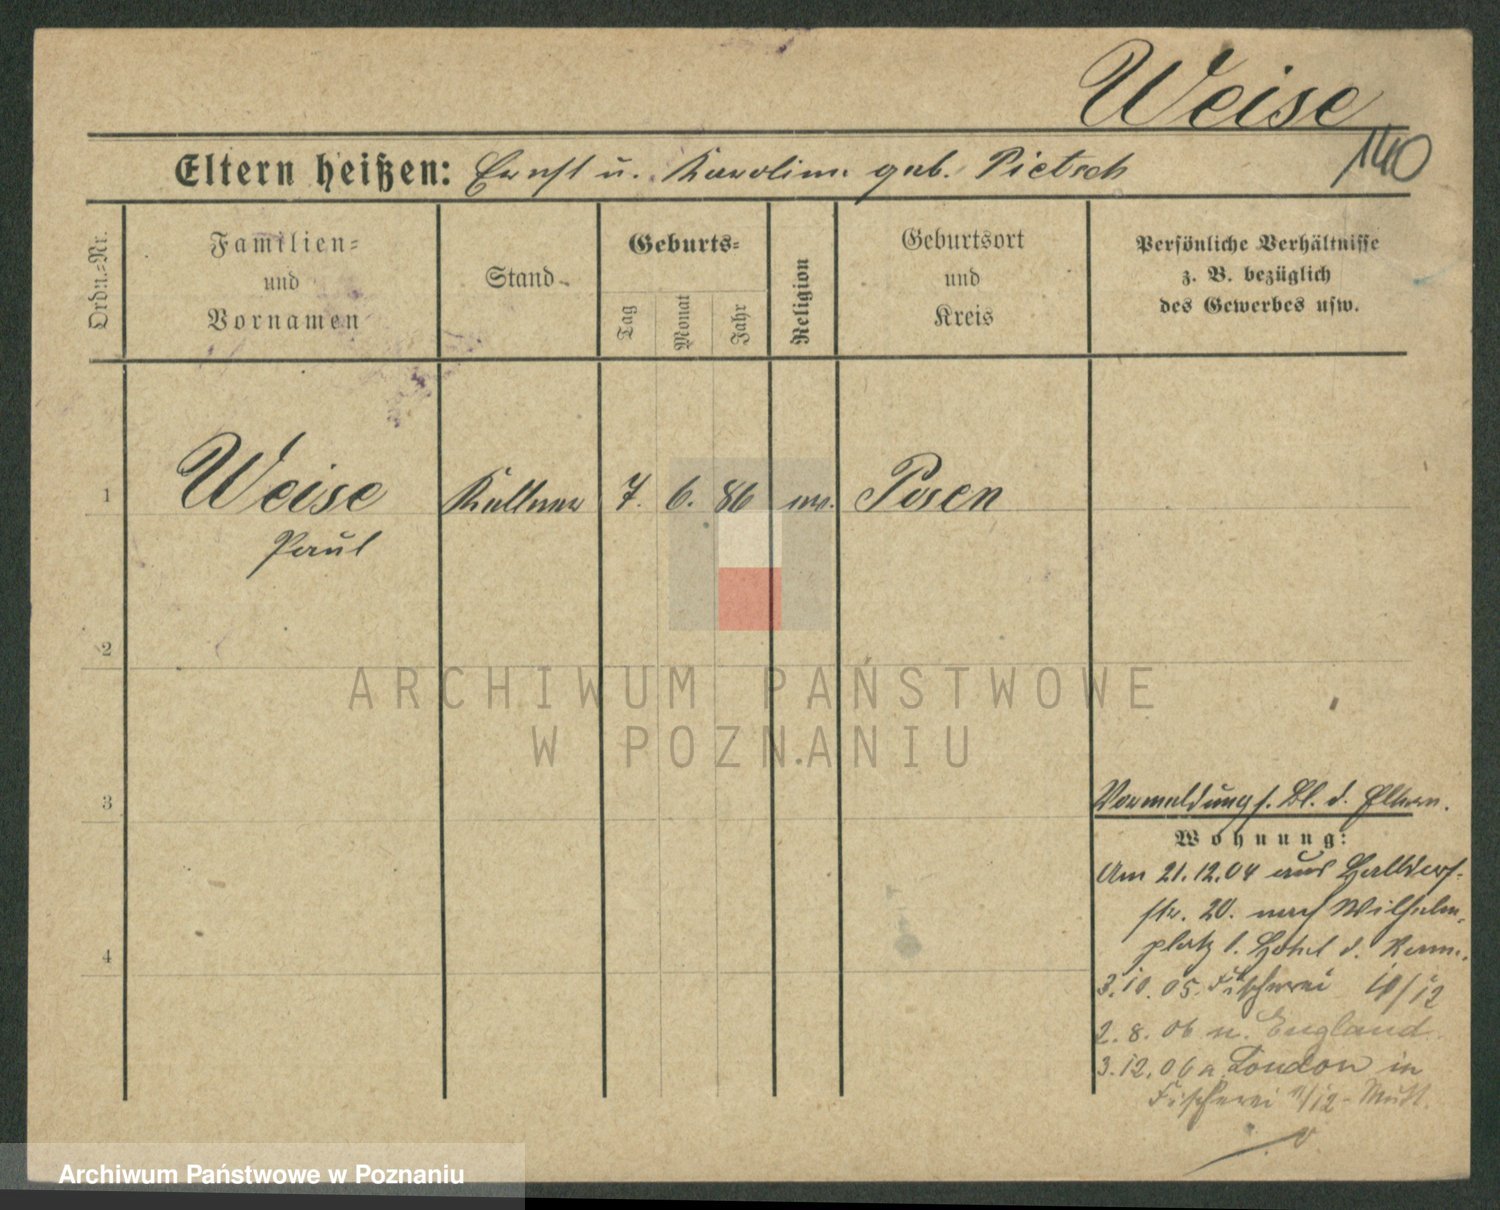 Weise
140
Eltern heißen: Ernst u. Karoline geb. Pietsch
Ordn.-Nr.
Familien-
und
Vornamen
Stand
Geburts-
Tag
Monat
Jahr
Religion
Geburtsort
und
Kreis
Persönliche Verhältnisse
z. B. bezüglich
des Gewerbes usw.
1 Weise Kellner 7. 6. 86 ev. Posen
Paul
2
3
4
Vormeldung s. Bl. d. Eltern.
Wohnung:
Am 21.12.04 aus Halbdorf-
str. 20. nach Wilhelm-
platz 1. Hotel d.
3.10.05. Fischerei 11/12
2.8.06 n. England
3.12.06 a. London in
Fischerei 11/12 - Mutt.
ARCHIWUM PAŃSTWOWE
W POZNANIU
Archiwum Państwowe w Poznaniu